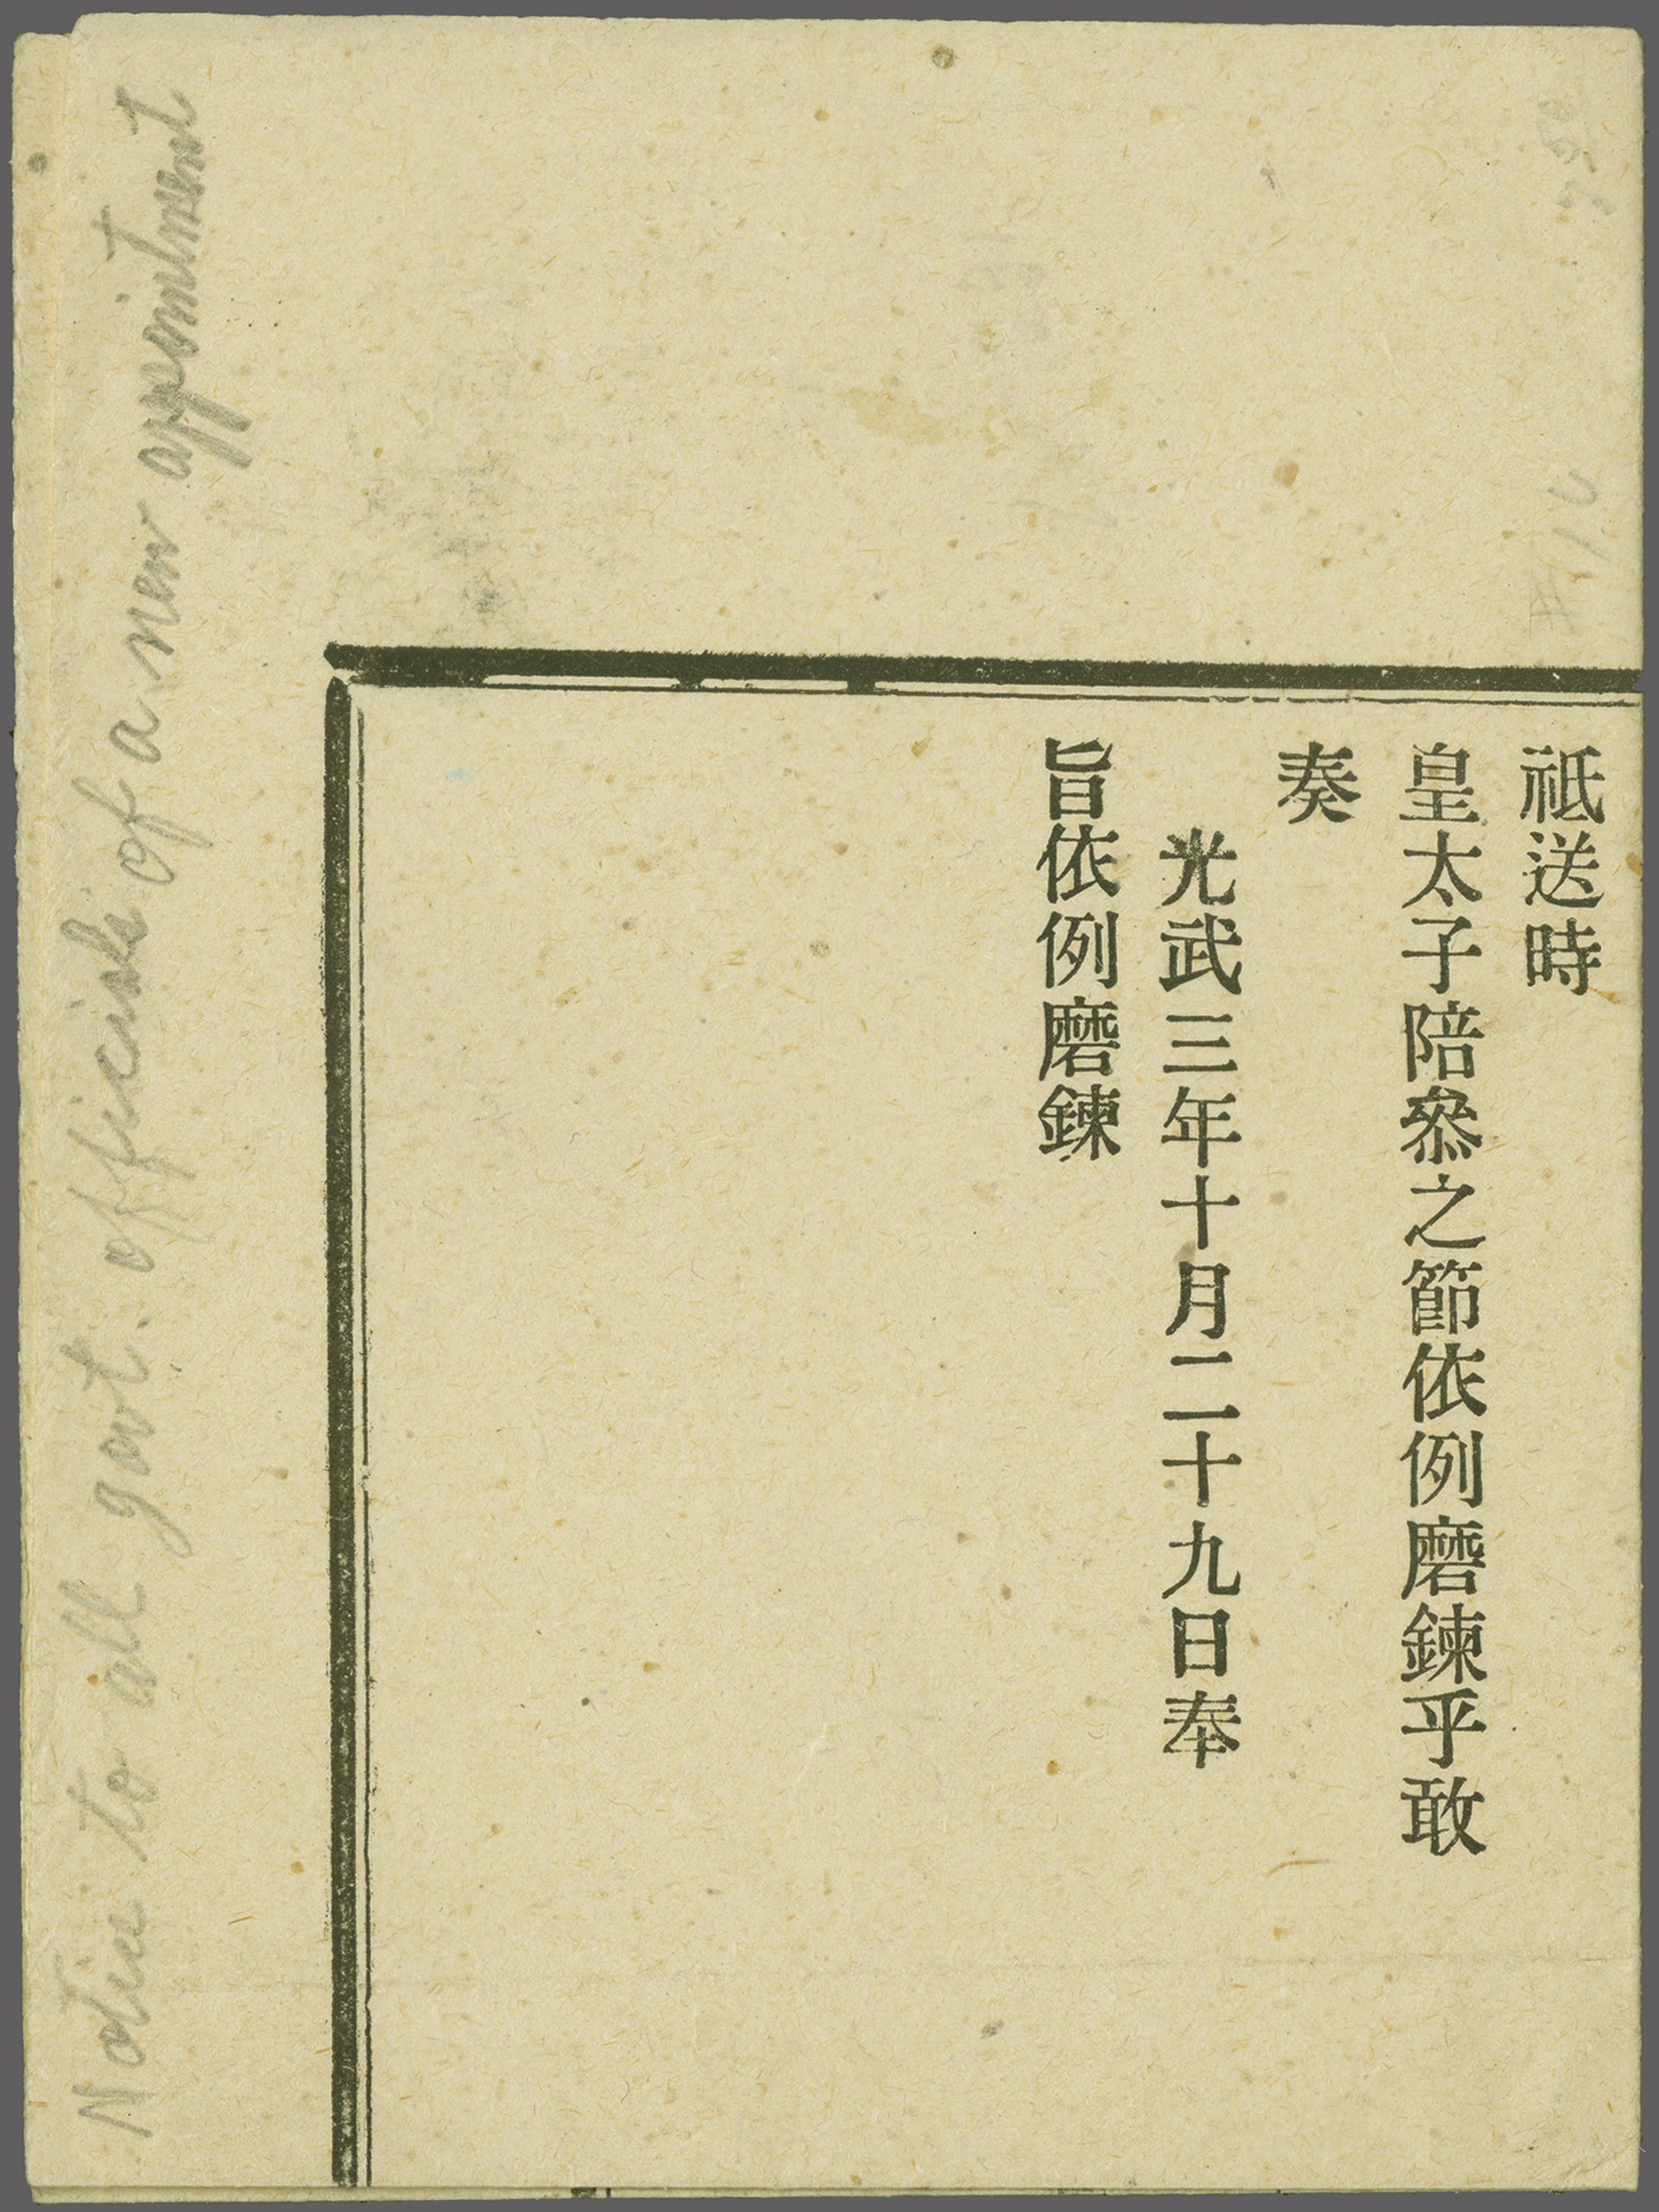 祗送時
皇太子陪叅之節依例磨鍊乎敢
奏
光武三年十月二十九日奉
旨依例磨鍊
Notice to all govt. officials of a new appointment